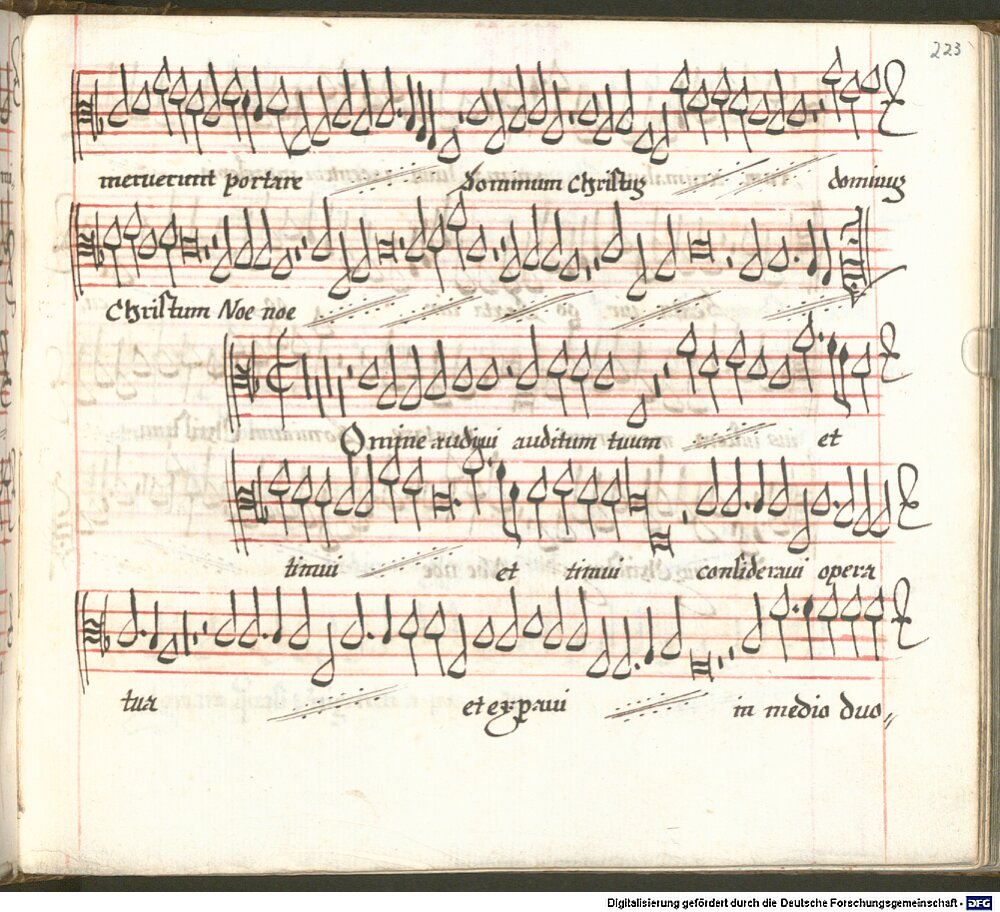 223
meruerunt portare Dominum Christus dominus
Christum Noe noe
Omine audivi auditum tuum et
timui et timui consideravi opera
tua et expavi in medio duo
Digitalisierung gefördert durch die Deutsche Forschungsgemeinschaft - DFG